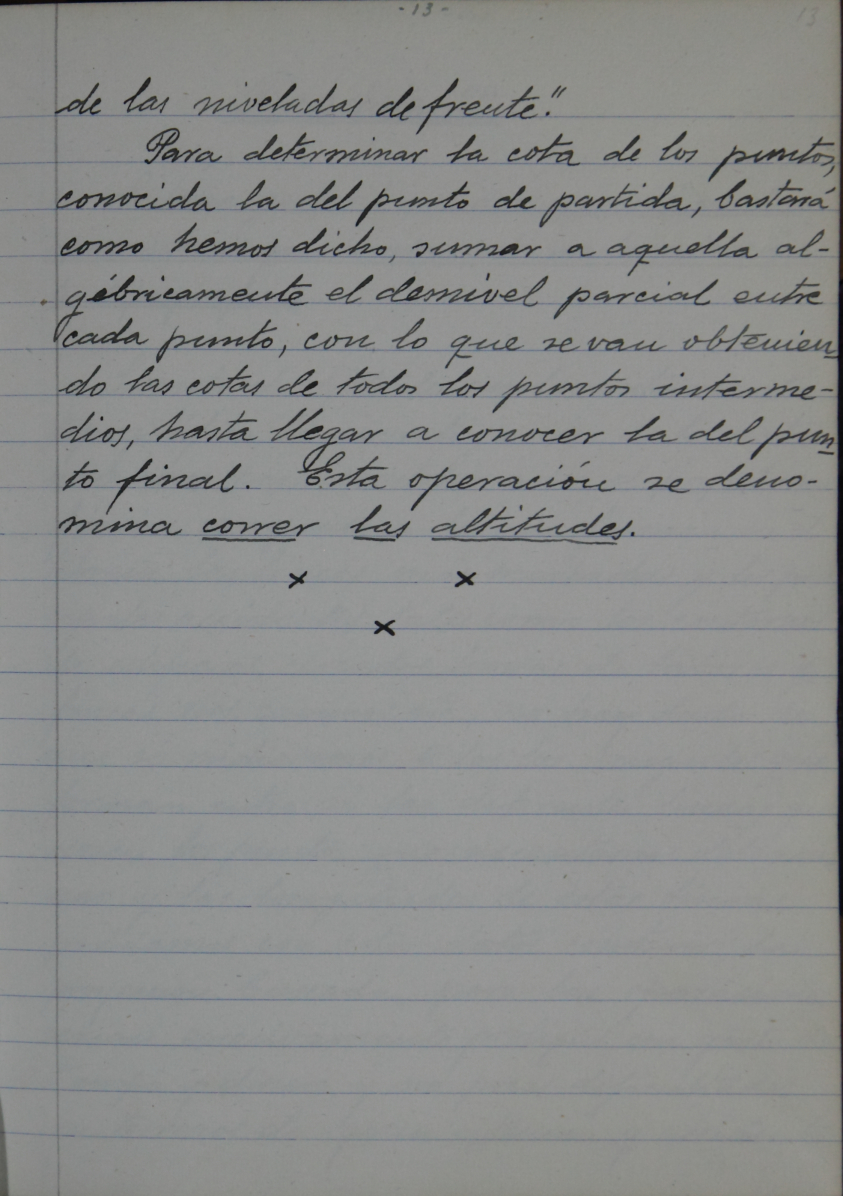 - 13 -
13
de las niveladas de frente."
Para determinar la cota de los puntos,
conocida la del punto de partida, bastará
como hemos dicho, sumar a aquella al-
gébricamente el desnivel parcial entre
cada punto, con lo que se van obtenien-
do las cotas de todos los puntos interme-
dios, hasta llegar a conocer la del pun-
to final. Esta operación se deno-
mina correr las altitudes.
x x
x